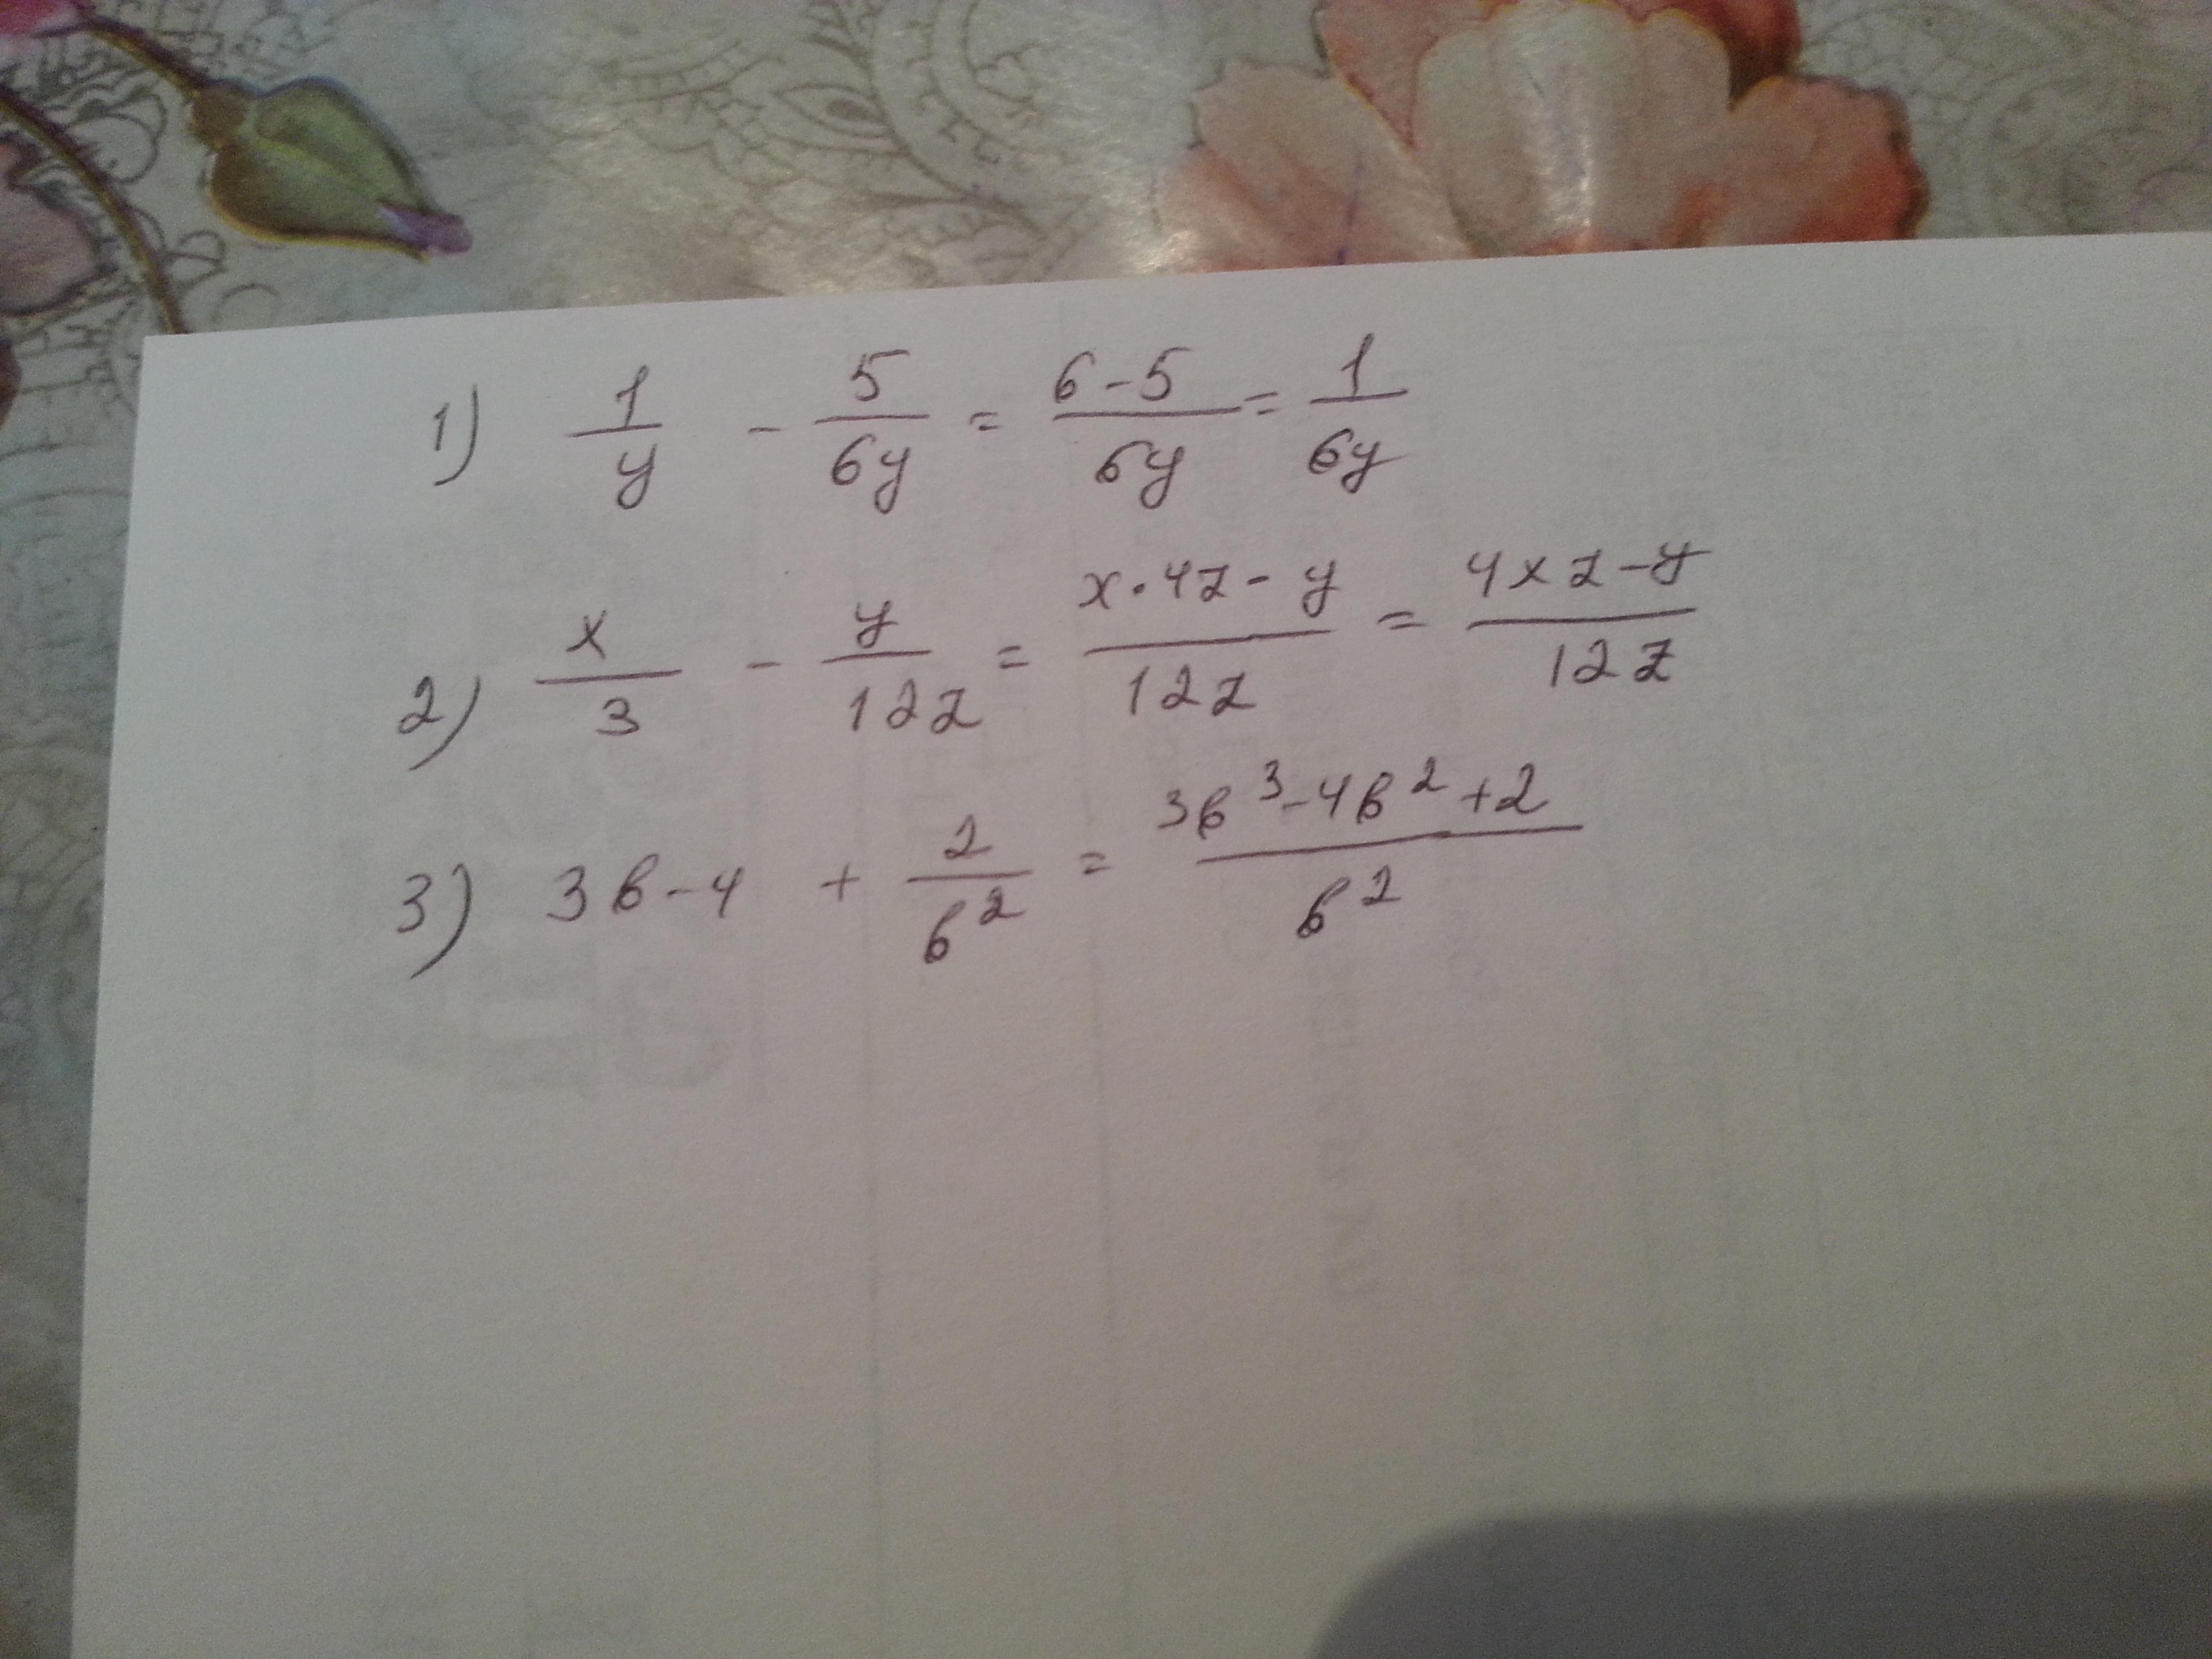 1) 1/y - 5/6y = 6-5/6y = 1/6y
2) x/3 - y/12z = x·4z-y/12z = 4xz-y/12z
3) 3b-4 + 2/b² = 3b³-4b²+2/b²